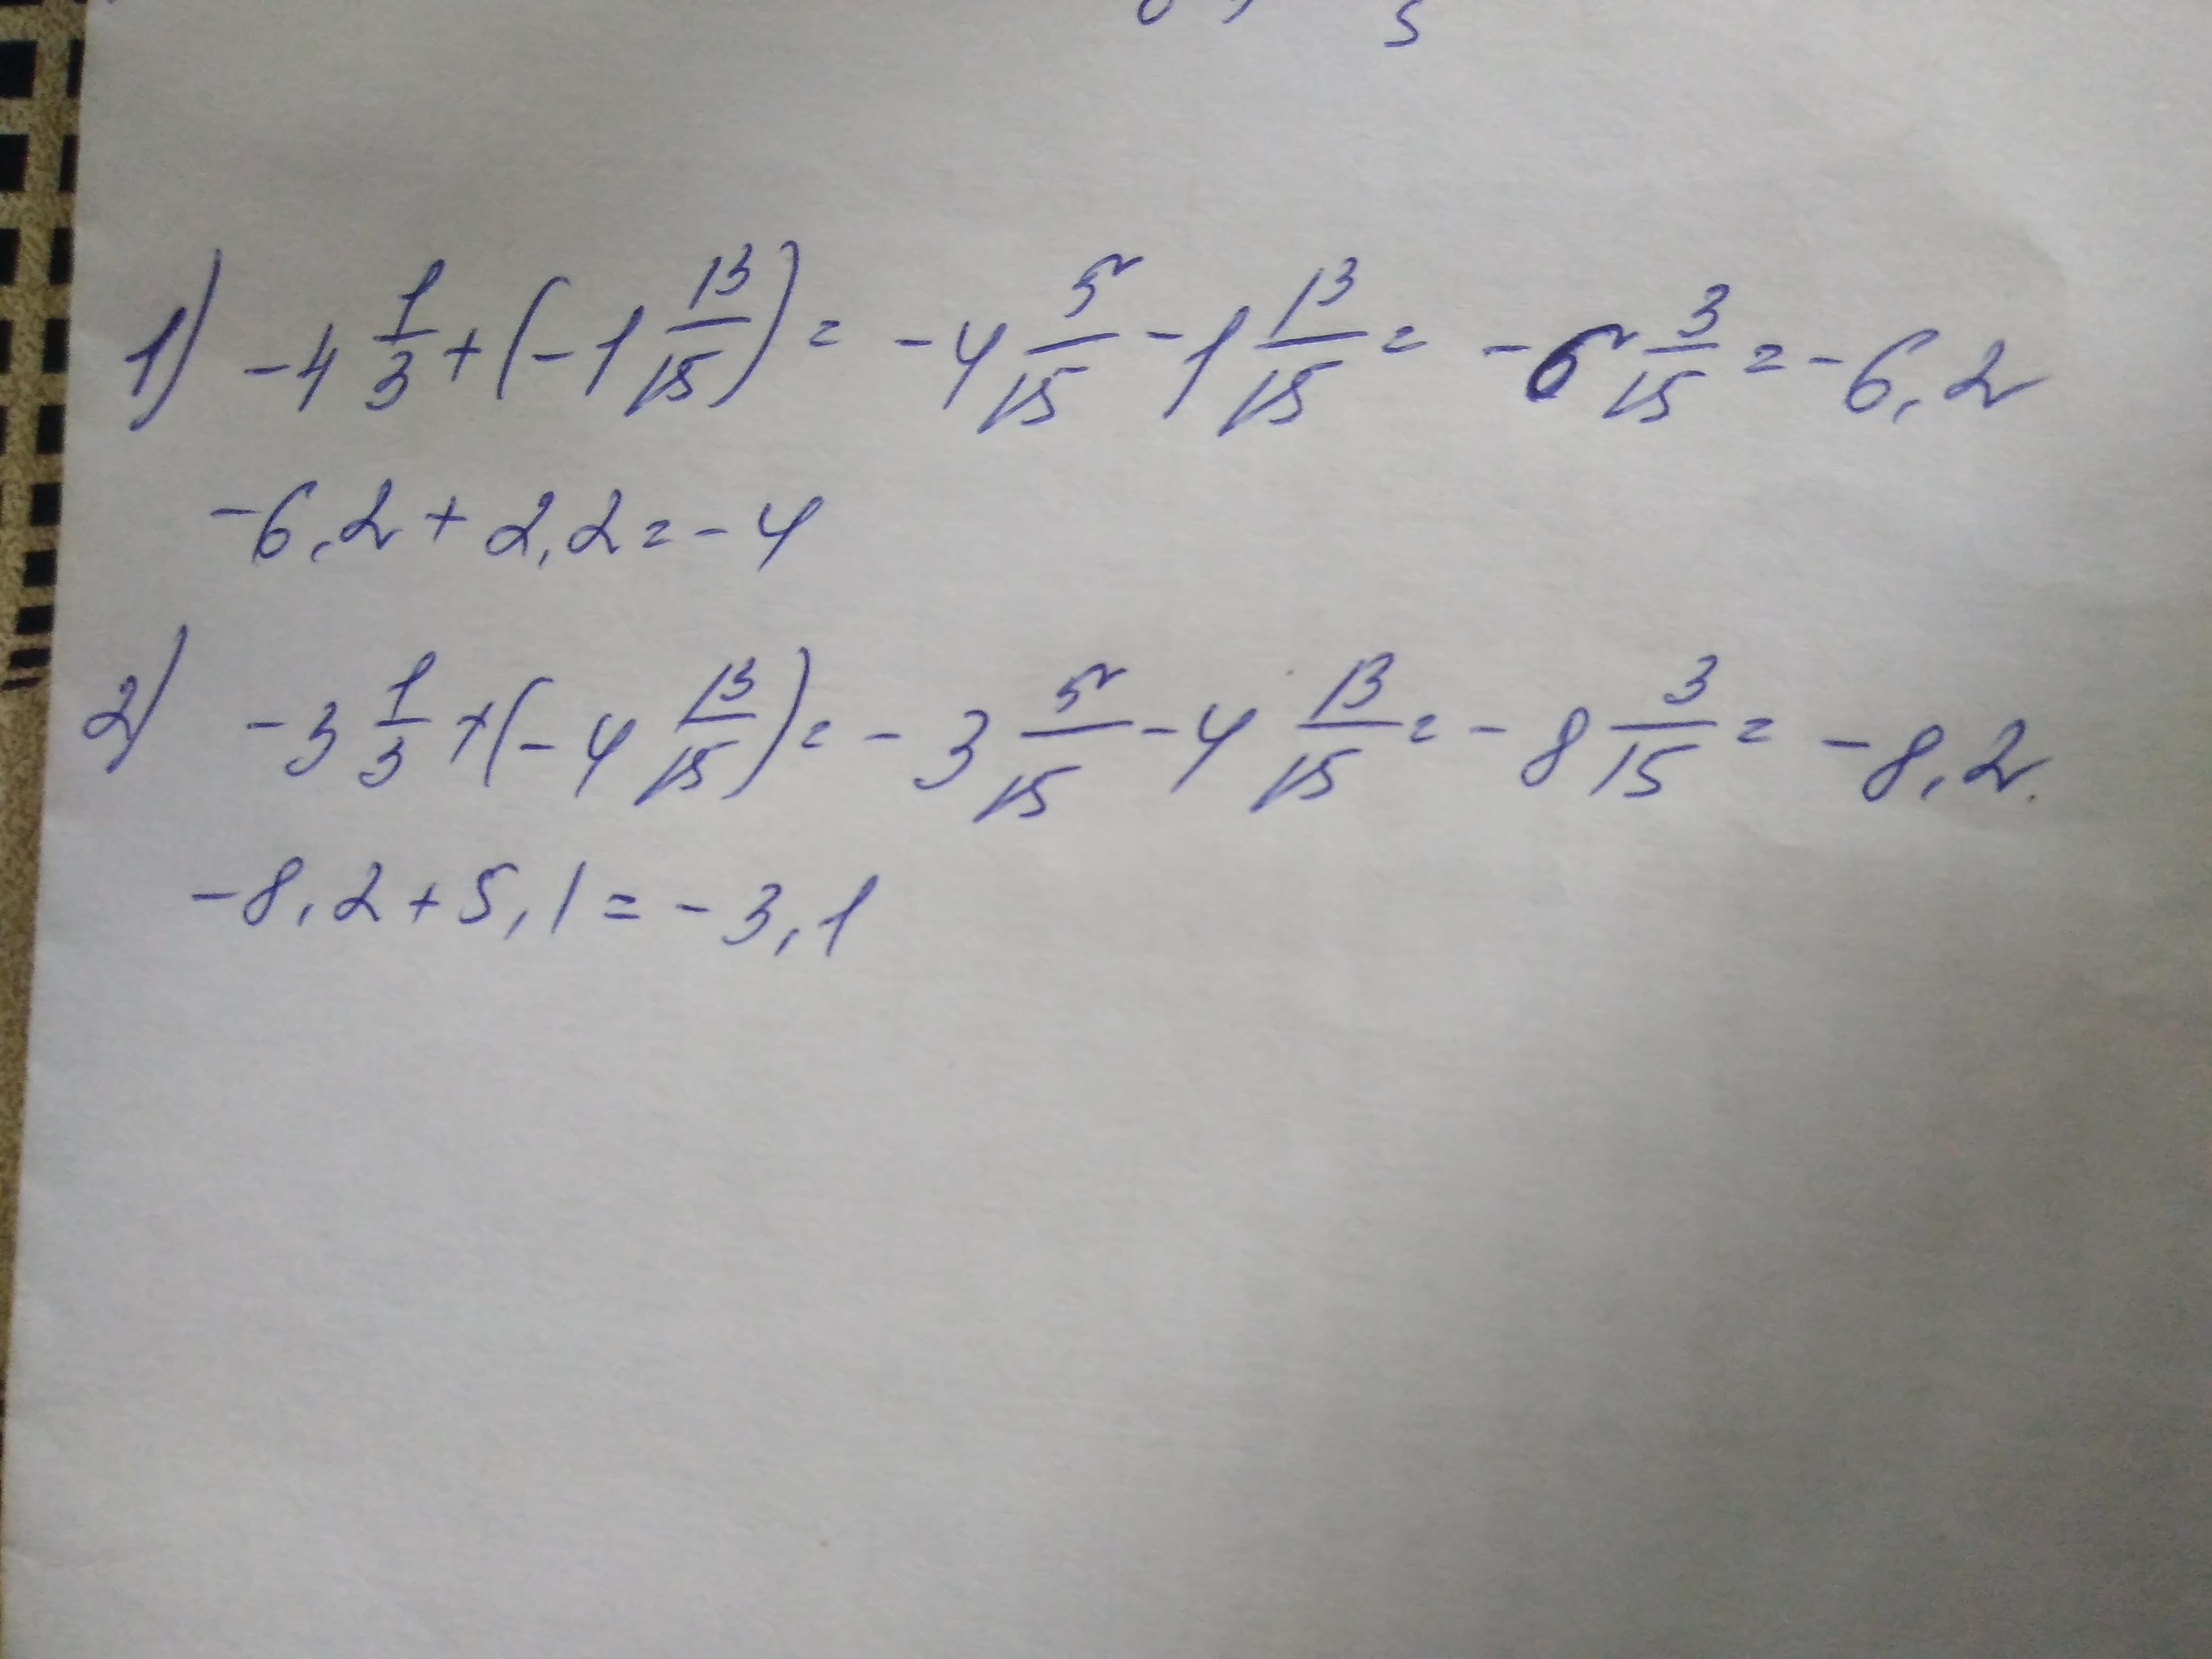 1) -4 1/3 + (-1 13/15) = -4 5/15 - 1 13/15 = -6 3/15 = -6,2
-6,2 + 2,2 = -4
2) -3 1/3 + (-4 13/15) = -3 5/15 - 4 13/15 = -8 3/15 = -8,2.
-8,2 + 5,1 = -3,1